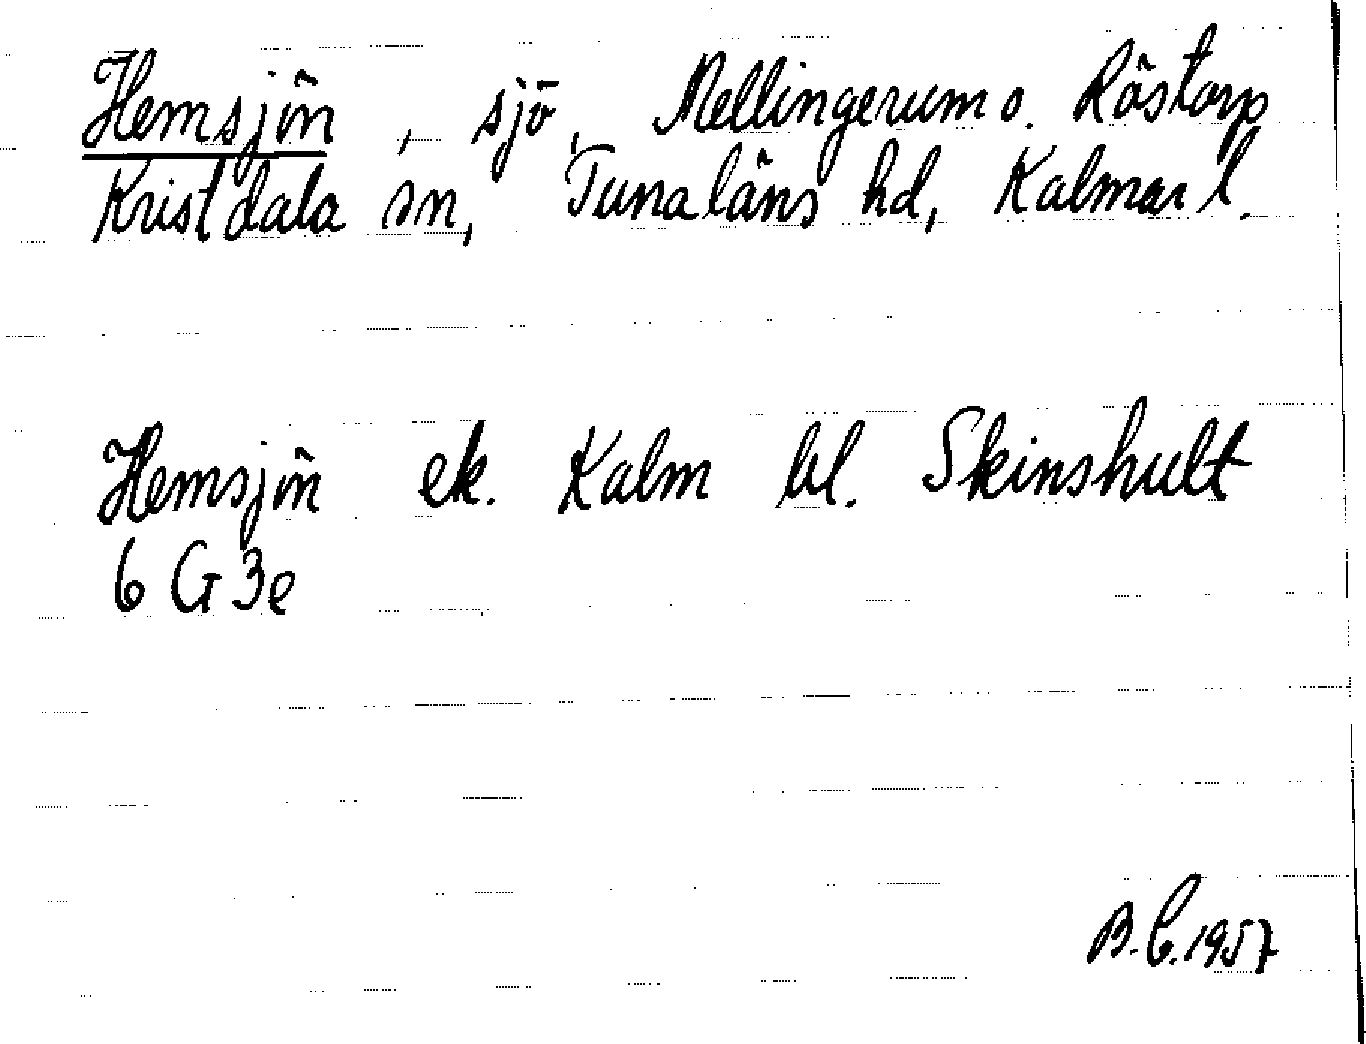 Hemsjön, sjö, Mellingerum o. Röstorp
Kristdala sn, Tunaläns hd, Kalmar l.
Hemsjön ek. Kalm bl. Skinshult
6 G 3e
B.C. 1957